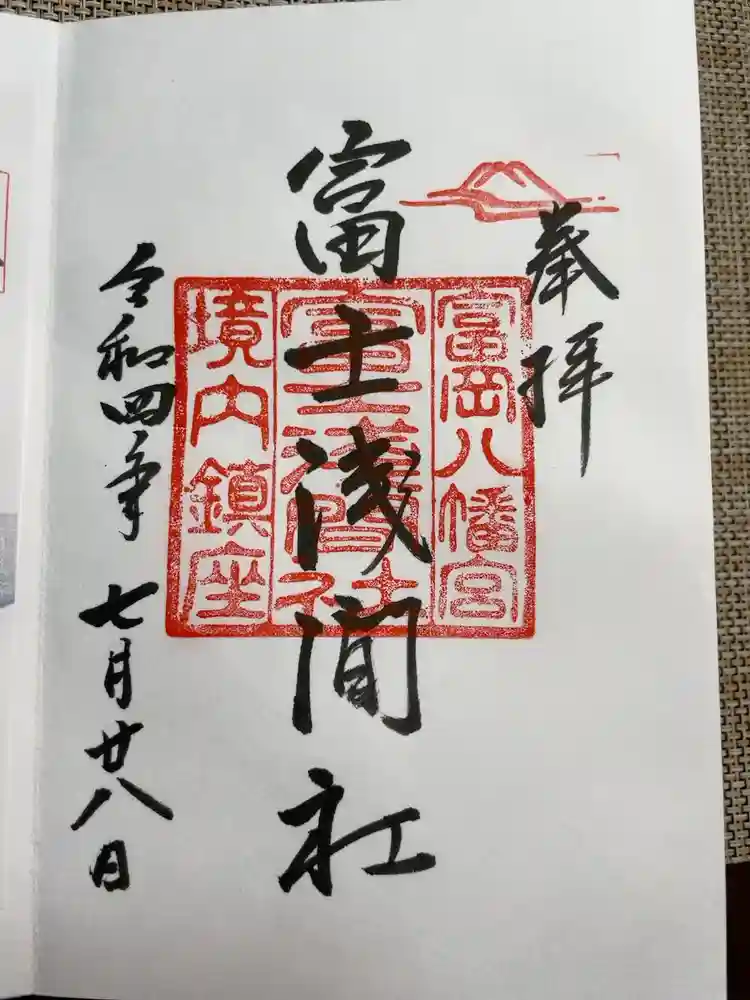 奉拝
富士浅間社
富岡八幡宮
富士浅間社
境内鎮座
令和四年七月廿八日